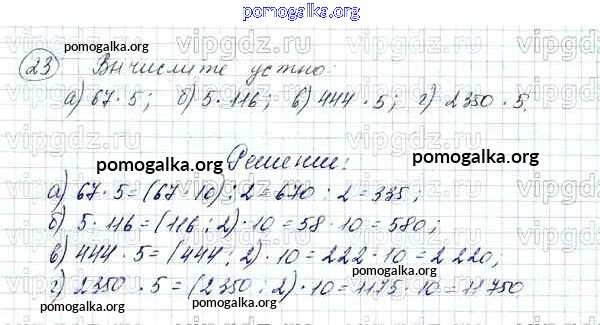 pomogalka.org
23 Вычислите устно:
а) 67 · 5; б) 5 · 116; в) 444 · 5; г) 2350 · 5.
Решение:
а) 67 · 5 = (67 · 10) : 2 = 670 : 2 = 335;
б) 5 · 116 = (116 : 2) · 10 = 58 · 10 = 580;
в) 444 · 5 = (444 : 2) · 10 = 222 · 10 = 2 220;
г) 2350 · 5 = (2350 : 2) · 10 = 1175 · 10 = 11 750
pomogalka.org
pomogalka.org
pomogalka.org
pomogalka.org
pomogalka.org
pomogalka.org
pomogalka.org
vipgdz.ru
vipgdz.ru
vipgdz.ru